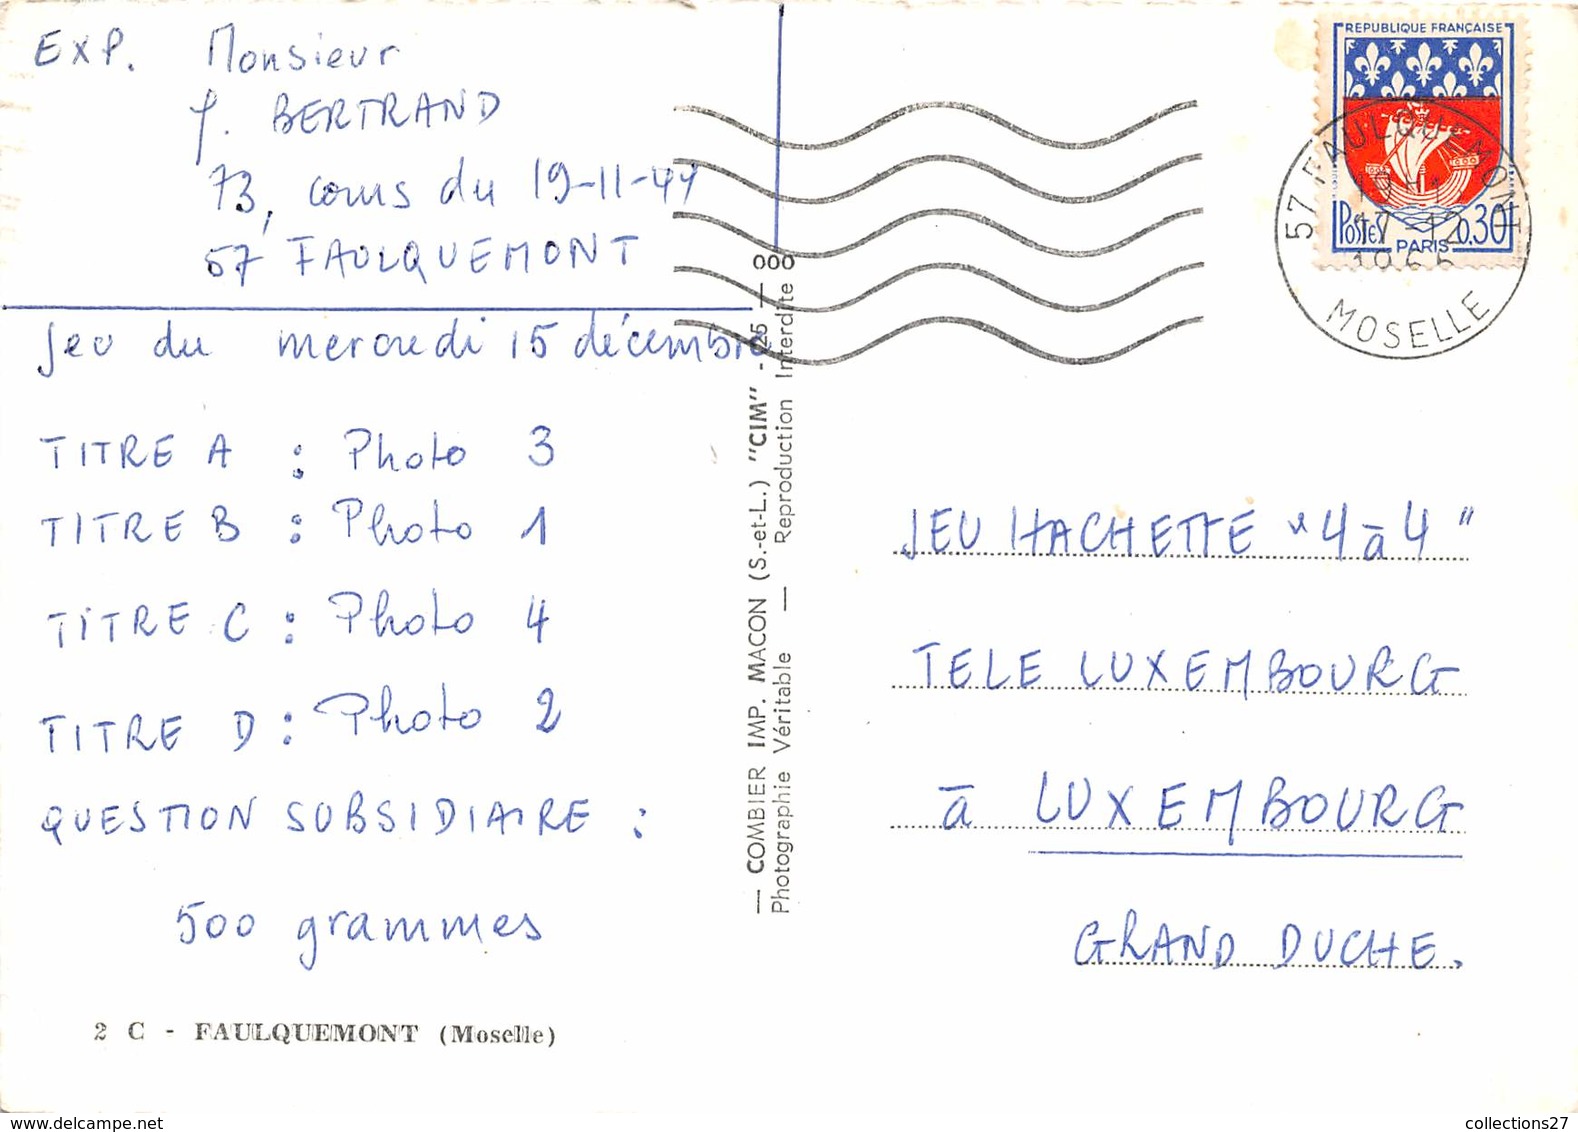 EXP. Monsieur
J. BERTRAND
73, cours du 19-11-44
57 FAULQUEMONT
Jeu du mercredi 15 décembre
TITRE A : Photo 3
TITRE B : Photo 1
TITRE C : Photo 4
TITRE D : Photo 2
QUESTION SUBSIDIAIRE :
500 grammes
2 C - FAULQUEMONT (Moselle)
— COMBIER IMP. MACON (S.-et-L.) "CIM" - 025 — 000
Photographie Véritable — Reproduction Interdite
REPUBLIQUE FRANÇAISE
POSTES PARIS 0.30F
57 FAULQUEMONT
17-12
1965
MOSELLE
JEU HACHETTE "4 à 4"
TELE LUXEMBOURG
à LUXEMBOURG
GRAND DUCHE.
collections27